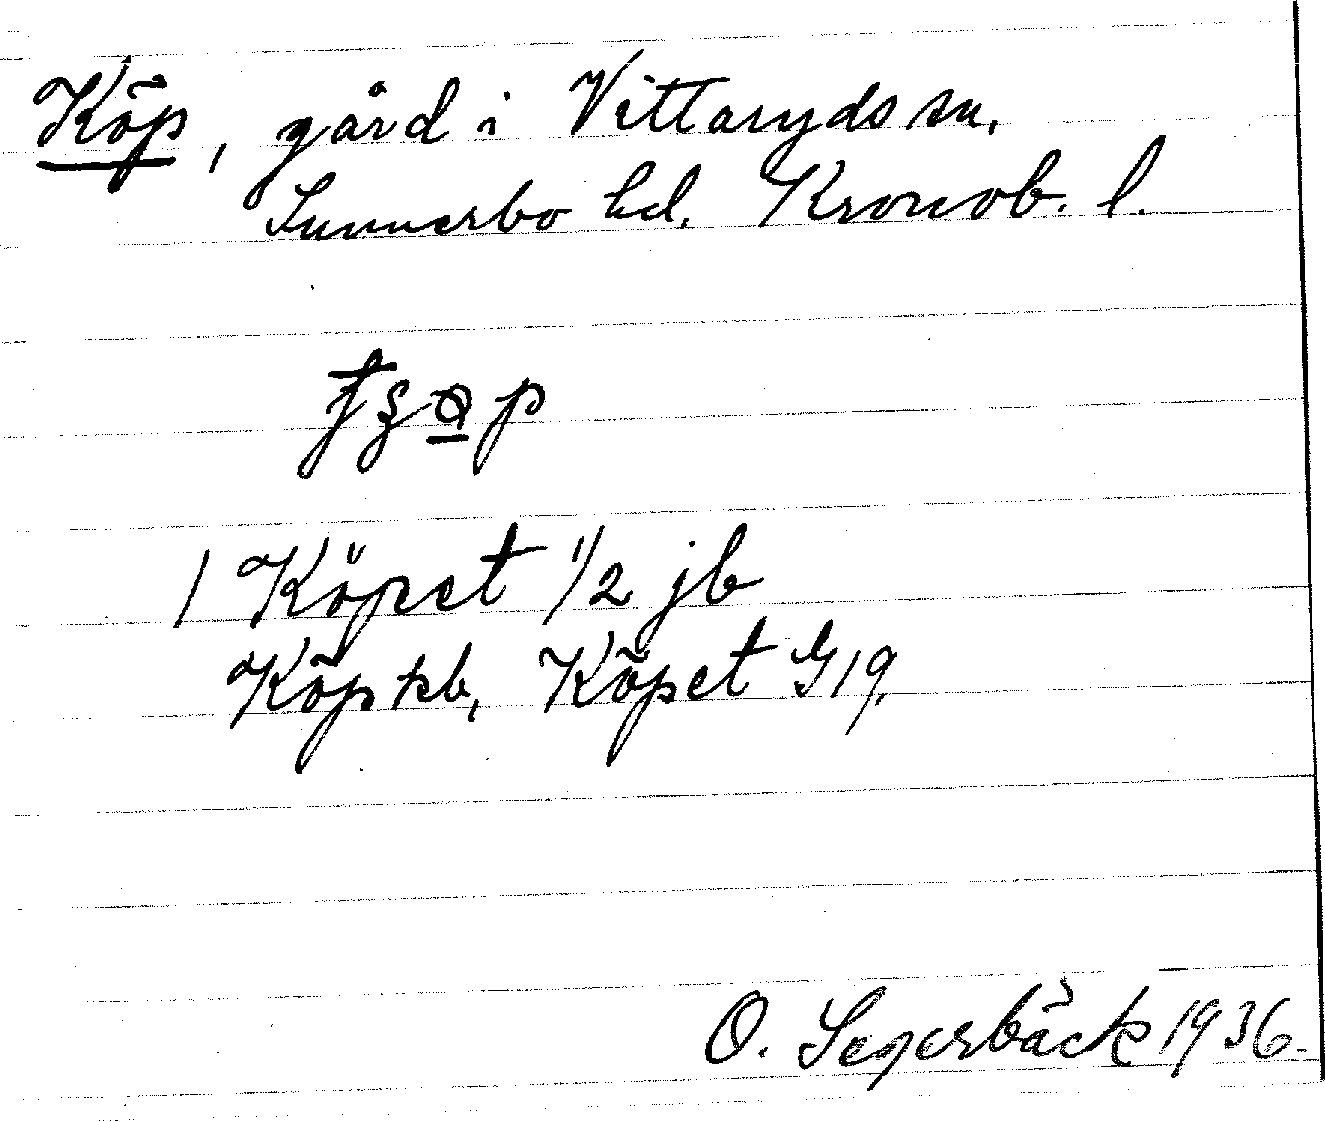 Köp, gård i Vittaryds sn,
Sunnerbo hd. Kronob. l.
1 Köpet 1/2 jb
Köp kb, Köpet G 19.
O. Segerbäck 1936.